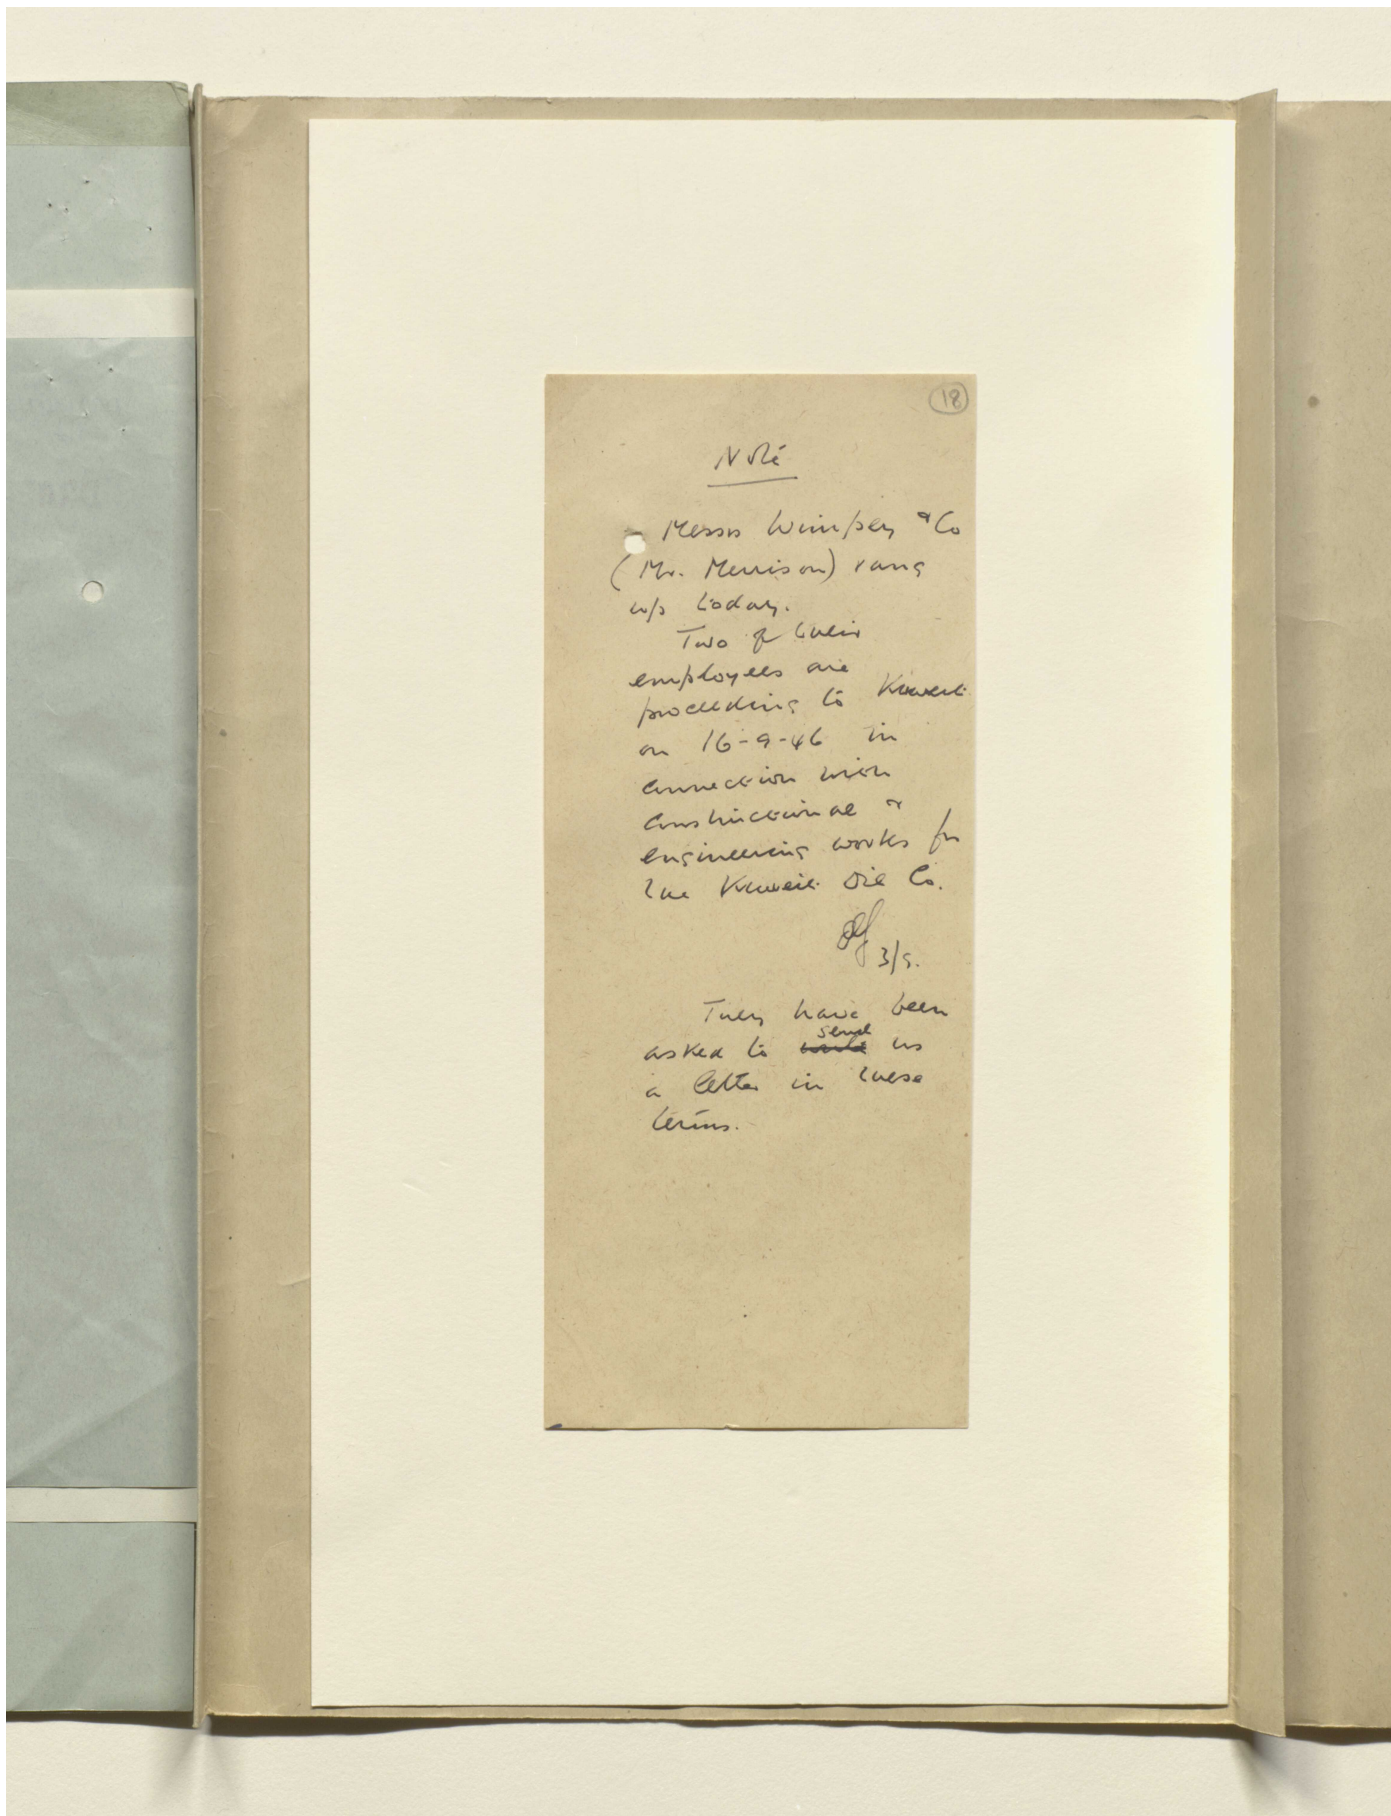 18
Note
Messrs Wimpey & Co
(Mr. Merrison) rang
up today.
Two of their
employees are
proceeding to Kuweit
on 16-9-46 in
connection with
constructional &
engineering works for
the Kuweit Oil Co.
3/9.
They have been
asked to send us
a letter in these
terms.